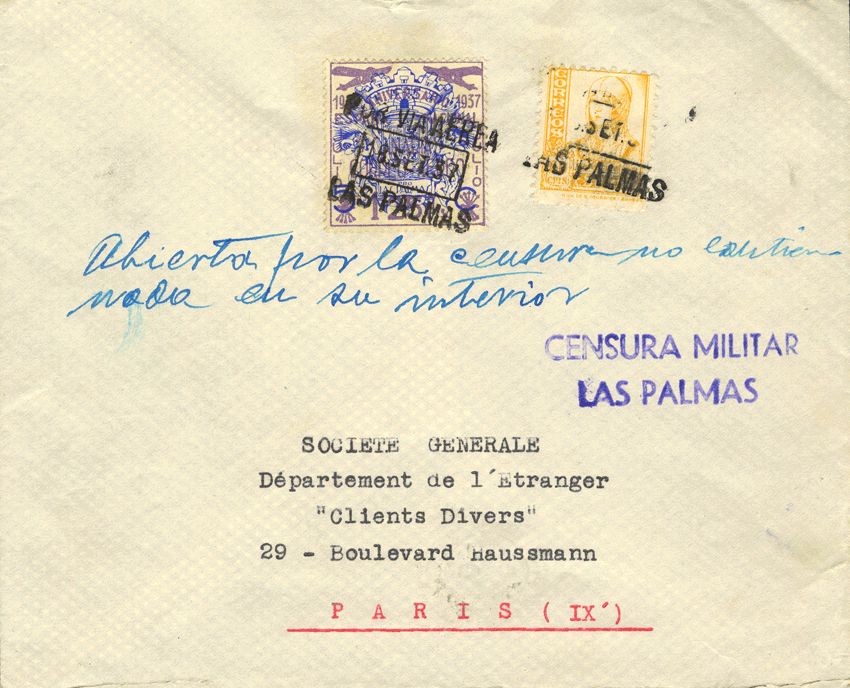 ANIVERSARIO 1937
POR VIA AEREA
SET.37
LAS PALMAS
CORREOS
SET.3
LAS PALMAS
Abierta por la censura no contiene
nada en su interior
CENSURA MILITAR
LAS PALMAS
SOCIETE GENERALE
Département de l'Etranger
"Clients Divers"
29 - Boulevard Haussmann
PARIS (IX')